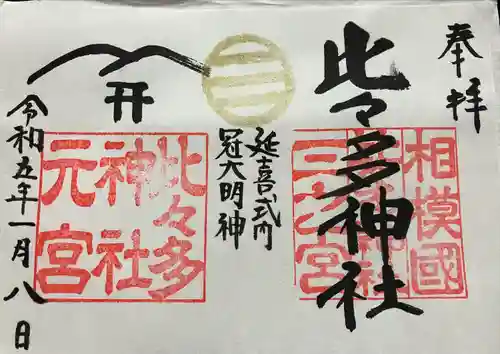 奉拝
相模國
三之宮
比々多神社
延喜式内
冠大明神
比々多
神社
元宮
令和五年一月八日